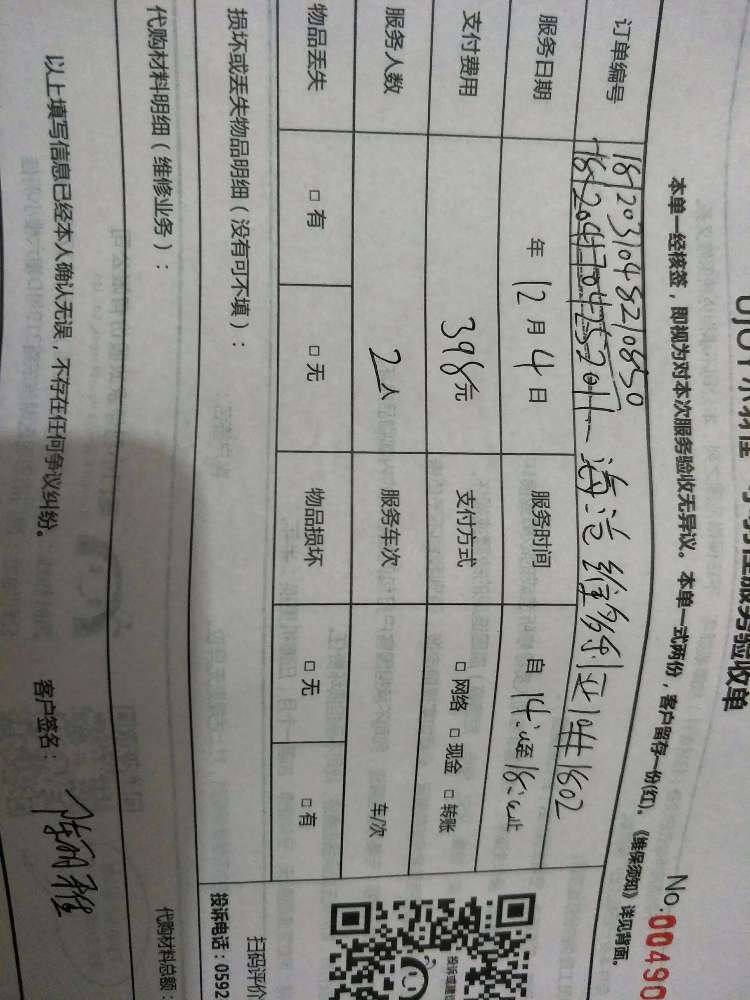 服务验收单
No.00490
本单一经核签，即视为对本次服务验收无异议。本单一式两份，客户留存一份(红)。《维保须知》详见背面。
订单编号 1812031048210850
服务日期 年 12 月 4 日 服务时间 自 14:00 至 18:00 止
支付费用 398元 支付方式 □ 网络 □ 现金 □ 转账
服务人数 2人 服务车次 车/次
物品丢失 □ 有 □ 无 物品损坏 □ 无 □ 有
损坏或丢失物品明细（没有可不填）：
扫码评价
投诉电话：0592
代购材料明细（维修业务）：
代购材料总额：
以上填写信息已经本人确认无误，不存在任何争议纠纷。 客户签名：